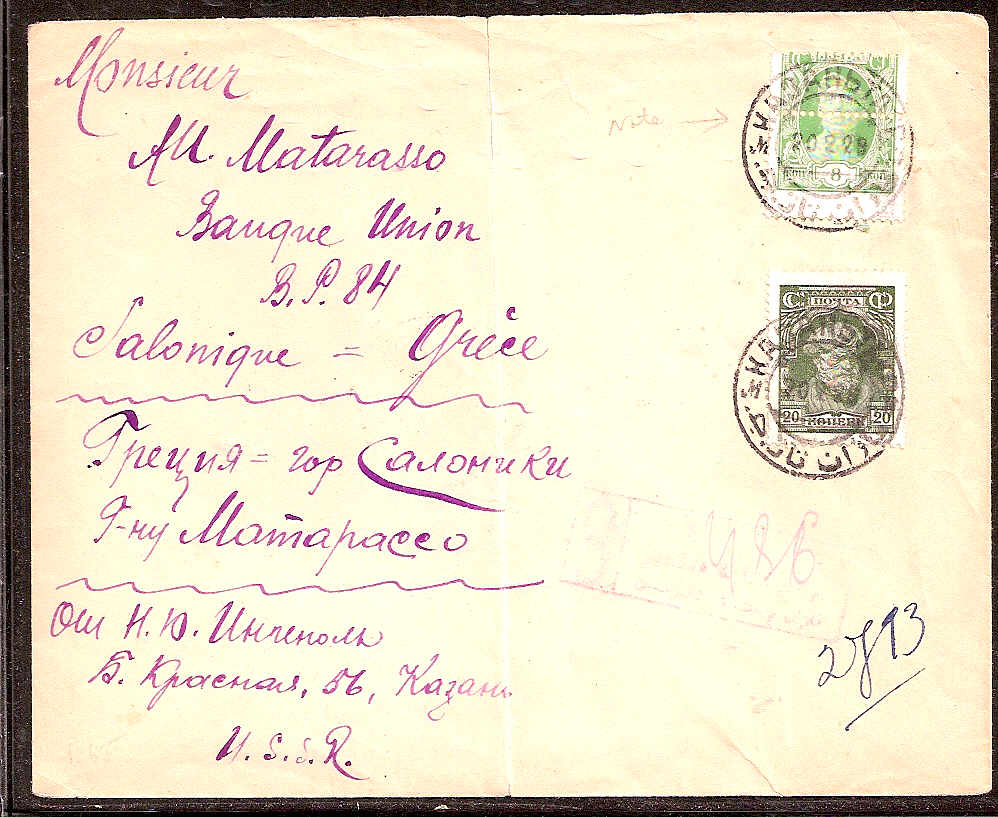 Monsieur
Al. Matarasso
Banque Union
B.P. 84
Salonique = Grèce
Греция = гор Салоники
Г-ну Матарассо
От Н. Ю. Инченоль
Б. Красная, 56, Казань
U.S.S.R.
Note
20 2 29
КОП 8 КОП
ПОЧТА
20 КОПЕЕК 20
2893